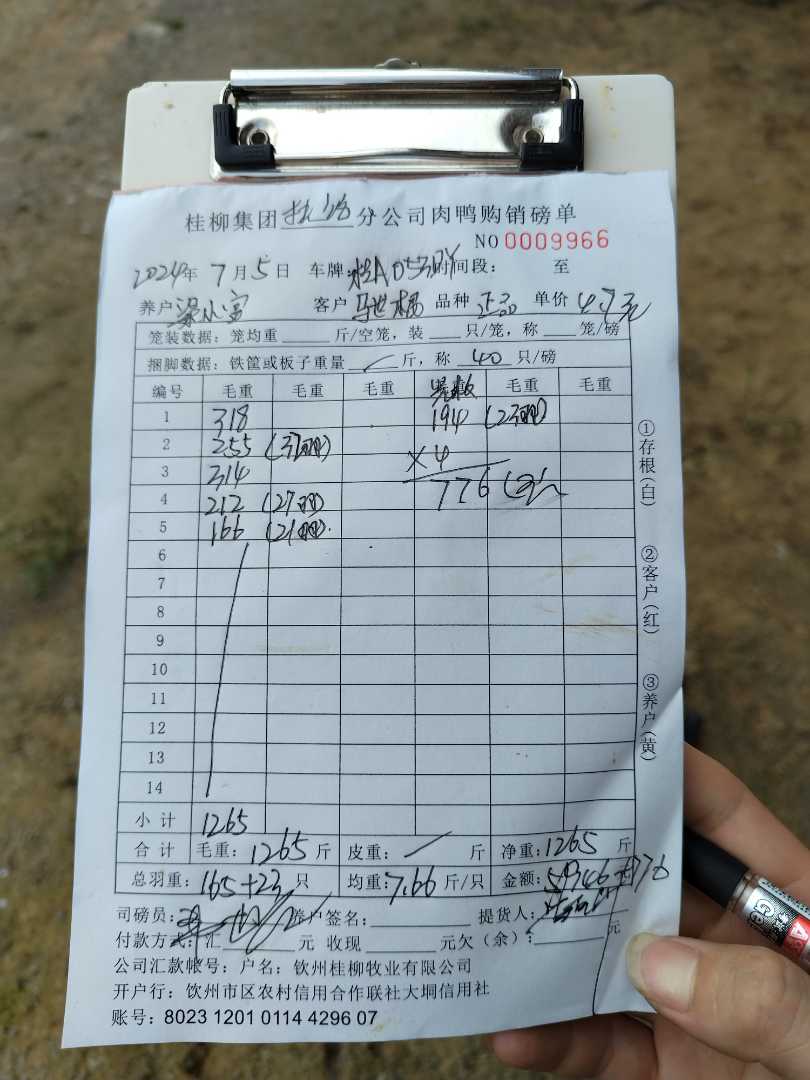 桂柳集团 分公司肉鸭购销磅单
NO 0009966
2024年 7月5日 车牌: 时间段: 至
养户 梁小富 客户 马世杨 品种 正品 单价 4.7元
笼装数据: 笼均重 斤/空笼, 装 只/笼, 称 笼/磅
捆脚数据: 铁筐或板子重量 / 斤, 称 40 只/磅
编号 毛重 毛重 毛重 毛重 毛重
1 318 194 (23只)
2 255 ×4
3 314 776
4 212
5 166
6
7
8
9
10
11
12
13
14
小计 1265
合计 毛重: 1265 斤 皮重: / 斤 净重: 1265 斤
总羽重: 165+23 只 均重: 7.66 斤/只 金额: 5946+776
司磅员: 养户签名: 提货人:
付款方式: 汇 元 收现 元欠(余): 元
公司汇款帐号: 户名: 钦州桂柳牧业有限公司
开户行: 钦州市区农村信用合作联社大垌信用社
账号: 8023 1201 0114 4296 07
①存根(白)
②客户(红)
③养户(黄)